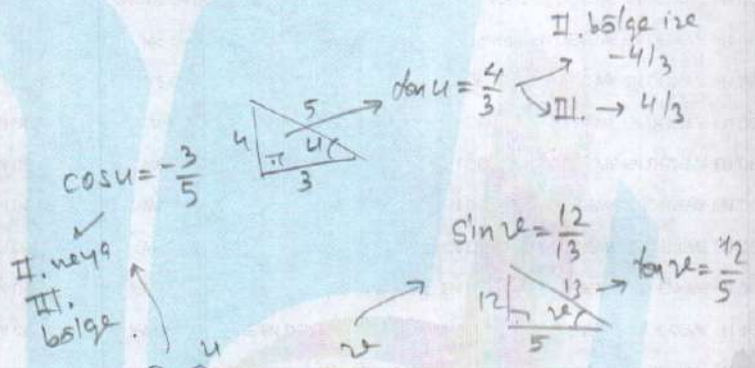 II. bölge ise
-4/3
tan u = 4/3
III. → 4/3
5
4
u
3
cos u = -3/5
II. veya
III.
bölge.
sin v = 12/13
tan v = 12/5
13
12
v
5
u
v